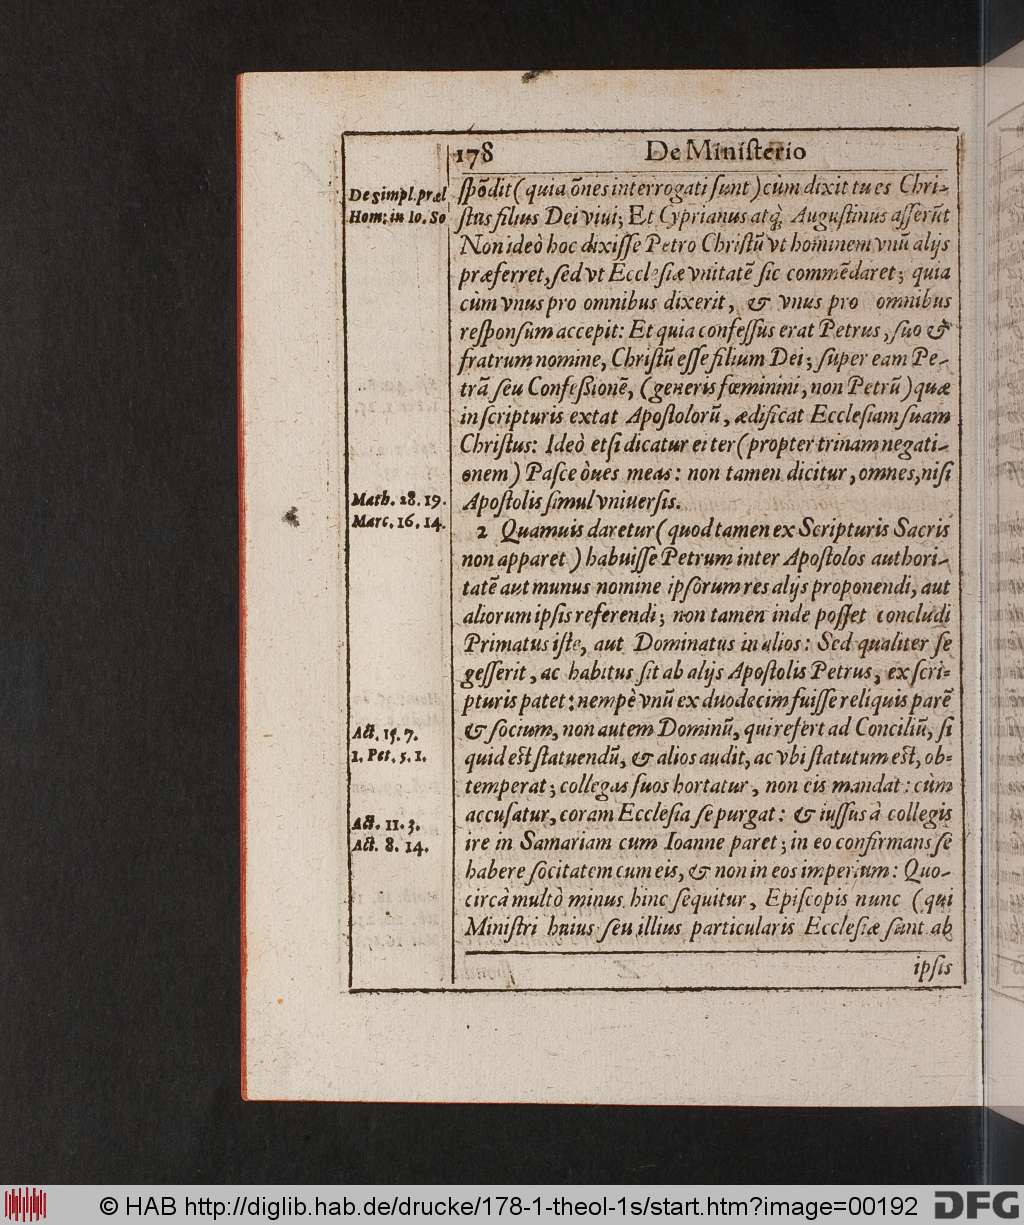 178 De Ministerio
De simpl. præl
Hom: in 10. So
spõdit (quia õnes interrogati sunt) cùm dixit tu es Chri-
stus filius Dei viui; Et Cyprianus atq; Augustinus asserũt
Non ideò hoc dixisse Petro Christũ vt hominem vnũ alijs
præferret, sed vt Ecclesiæ vnitatẽ sic commẽdaret; quia
cùm vnus pro omnibus dixerit, & vnus pro omnibus
responsum accepit: Et quia confessus erat Petrus, suo &
fratrum nomine, Christũ esse filium Dei; super eam Pe-
trã seu Confessionẽ, (generis fœminini, non Petrũ) quæ
in scripturis extat Apostolorũ, ædificat Ecclesiam suam
Christus: Ideò etsi dicatur ei ter (propter trinam negati-
onem) Pasce òues meas: non tamen dicitur, omnes, nisi
Math. 28. 19.
Apostolis simul vniuersis.
Marc. 16. 14.
2 Quamuis daretur (quod tamen ex Scripturis Sacris
non apparet) habuisse Petrum inter Apostolos authori-
tatẽ aut munus nomine ipsorum res alijs proponendi, aut
aliorum ipsis referendi; non tamen inde posset concludi
Primatus iste, aut Dominatus in alios: Sed qualiter se
gesserit, ac habitus sit ab alijs Apostolis Petrus, ex scri-
pturis patet: nempè vnũ ex duodecim fuisse reliquis parẽ
Act. 15. 7.
& socium, non autem Dominũ, qui refert ad Conciliũ, si
1. Pet. 5. 1.
quid est statuendũ, & alios audit, ac vbi statutum est, ob-
temperat; collegas suos hortatur, non eis mandat: cùm
Act. 11. 3.
accusatur, coram Ecclesia se purgat: & iussus à collegis
Act. 8. 14.
ire in Samariam cum Ioanne paret; in eo confirmans se
habere socitatem cum eis, & non in eos imperium: Quo-
circà multò minus hinc sequitur, Episcopis nunc (qui
Ministri huius seu illius particularis Ecclesiæ sunt ab
ipsis
© HAB http://diglib.hab.de/drucke/178-1-theol-1s/start.htm?image=00192
DFG